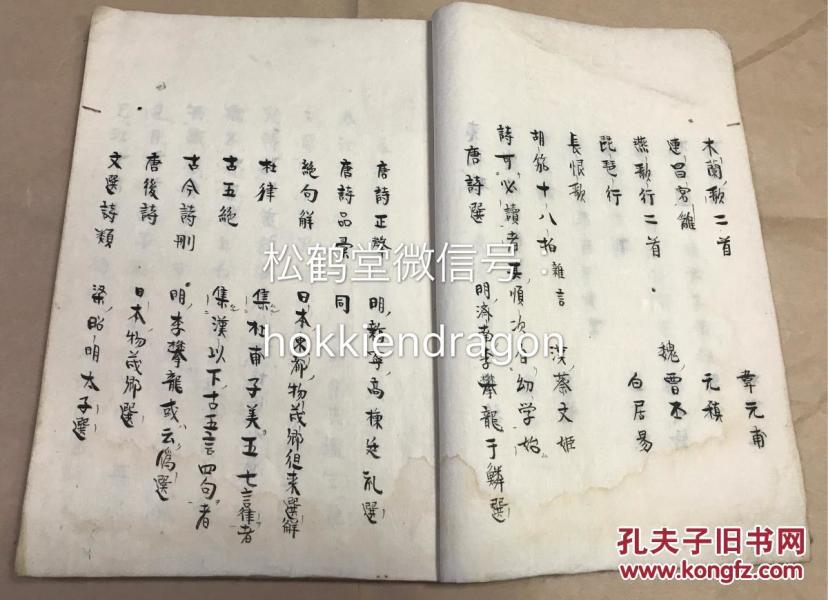 木蘭歌二首 韋元甫
連昌宮雛 元稹
燕歌行二首 魏曹丕
琵琶行 白居易
長恨歌
胡笳十八拍 雜言 漢蔡文姬
詩可必讀者其順次自幼学始
唐詩選 明濟南李攀龍于鱗選
唐詩正聲 明新寧高棟廷礼選
唐詩品彙 同
絶句解 日本東都物茂卿徂来選解
杜律 集杜甫子美五七言律者
古五絶 集漢以下古五言四句者
古今詩刪 明李攀龍或云偽選
唐後詩 日本物茂卿選
文選詩類 梁昭明太子選
松鹤堂微信号：
hokkiendragon
孔夫子旧书网
www.kongfz.com